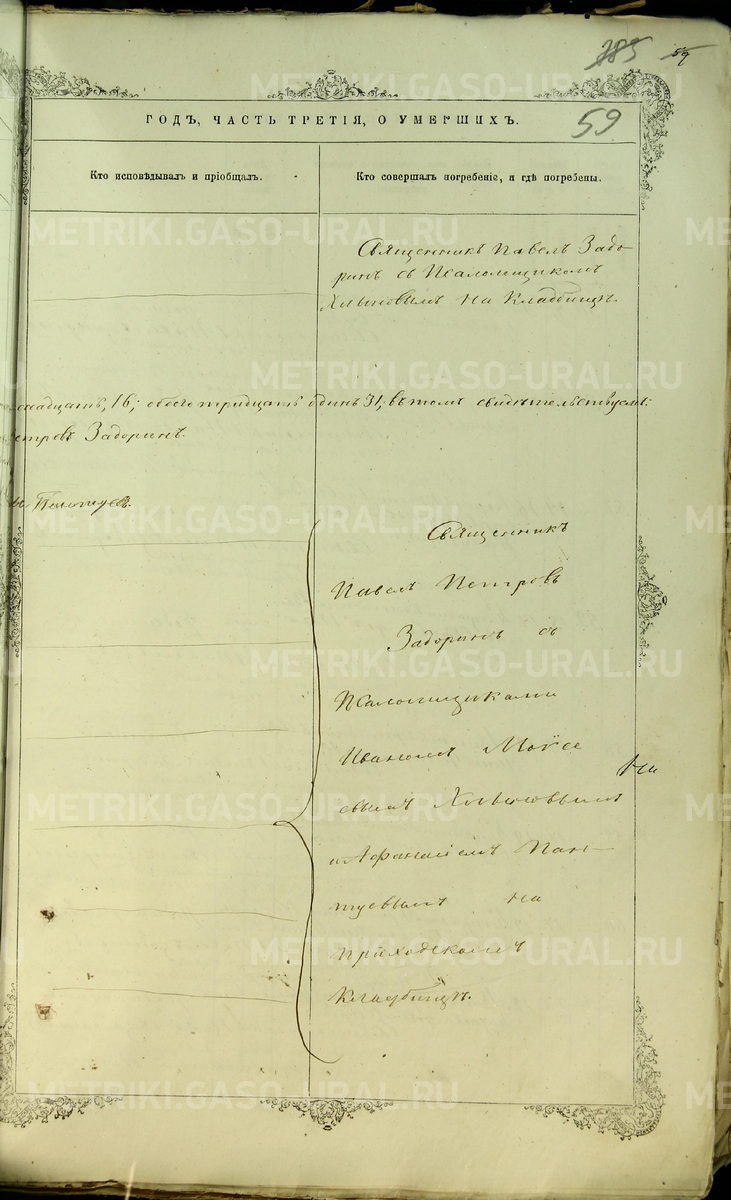 385 59
59
ГОДЪ, ЧАСТЬ ТРЕТІЯ, О УМЕРШИХЪ.
Кто исповѣдывалъ и пріобщалъ.
Кто совершалъ погребеніе, и гдѣ погребены.
Священникъ Павелъ Задо-
ринъ съ Псаломщикомъ
Хлыновымъ на Кладбищѣ.
надцать, 16; обоего тридцать одинъ 31, въ томъ свидѣтельствуемъ:
етровъ Задоринъ.
Пантуевъ.
Священникъ
Павелъ Петровъ
Задоринъ съ
Псаломщиками
Иваномъ Моѵсе
евымъ Хлыновымъ
и Афанасіемъ Пан-
туевымъ на
приходскомъ
Кладбищѣ.
METRIKI.GASO-URAL.RU